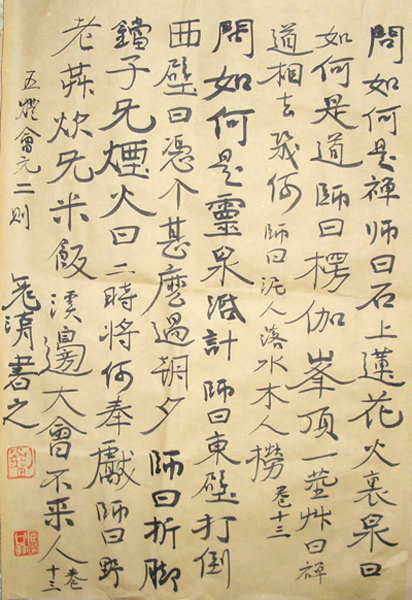 問如何是禪師曰石上蓮花火裏泉曰
如何是道師曰楞伽峯頂一莖艸曰禪
道相去幾何師曰泥人落水木人撈 卷十三
問如何是靈泉活計師曰東壁打倒
西壁曰憑个甚麼過朝夕師曰折脚
鐺子无煙火曰二時將何奉獻師曰野
老共炊无米飯溪邊大會不來人 卷十三
五燈會元二則
濤書之